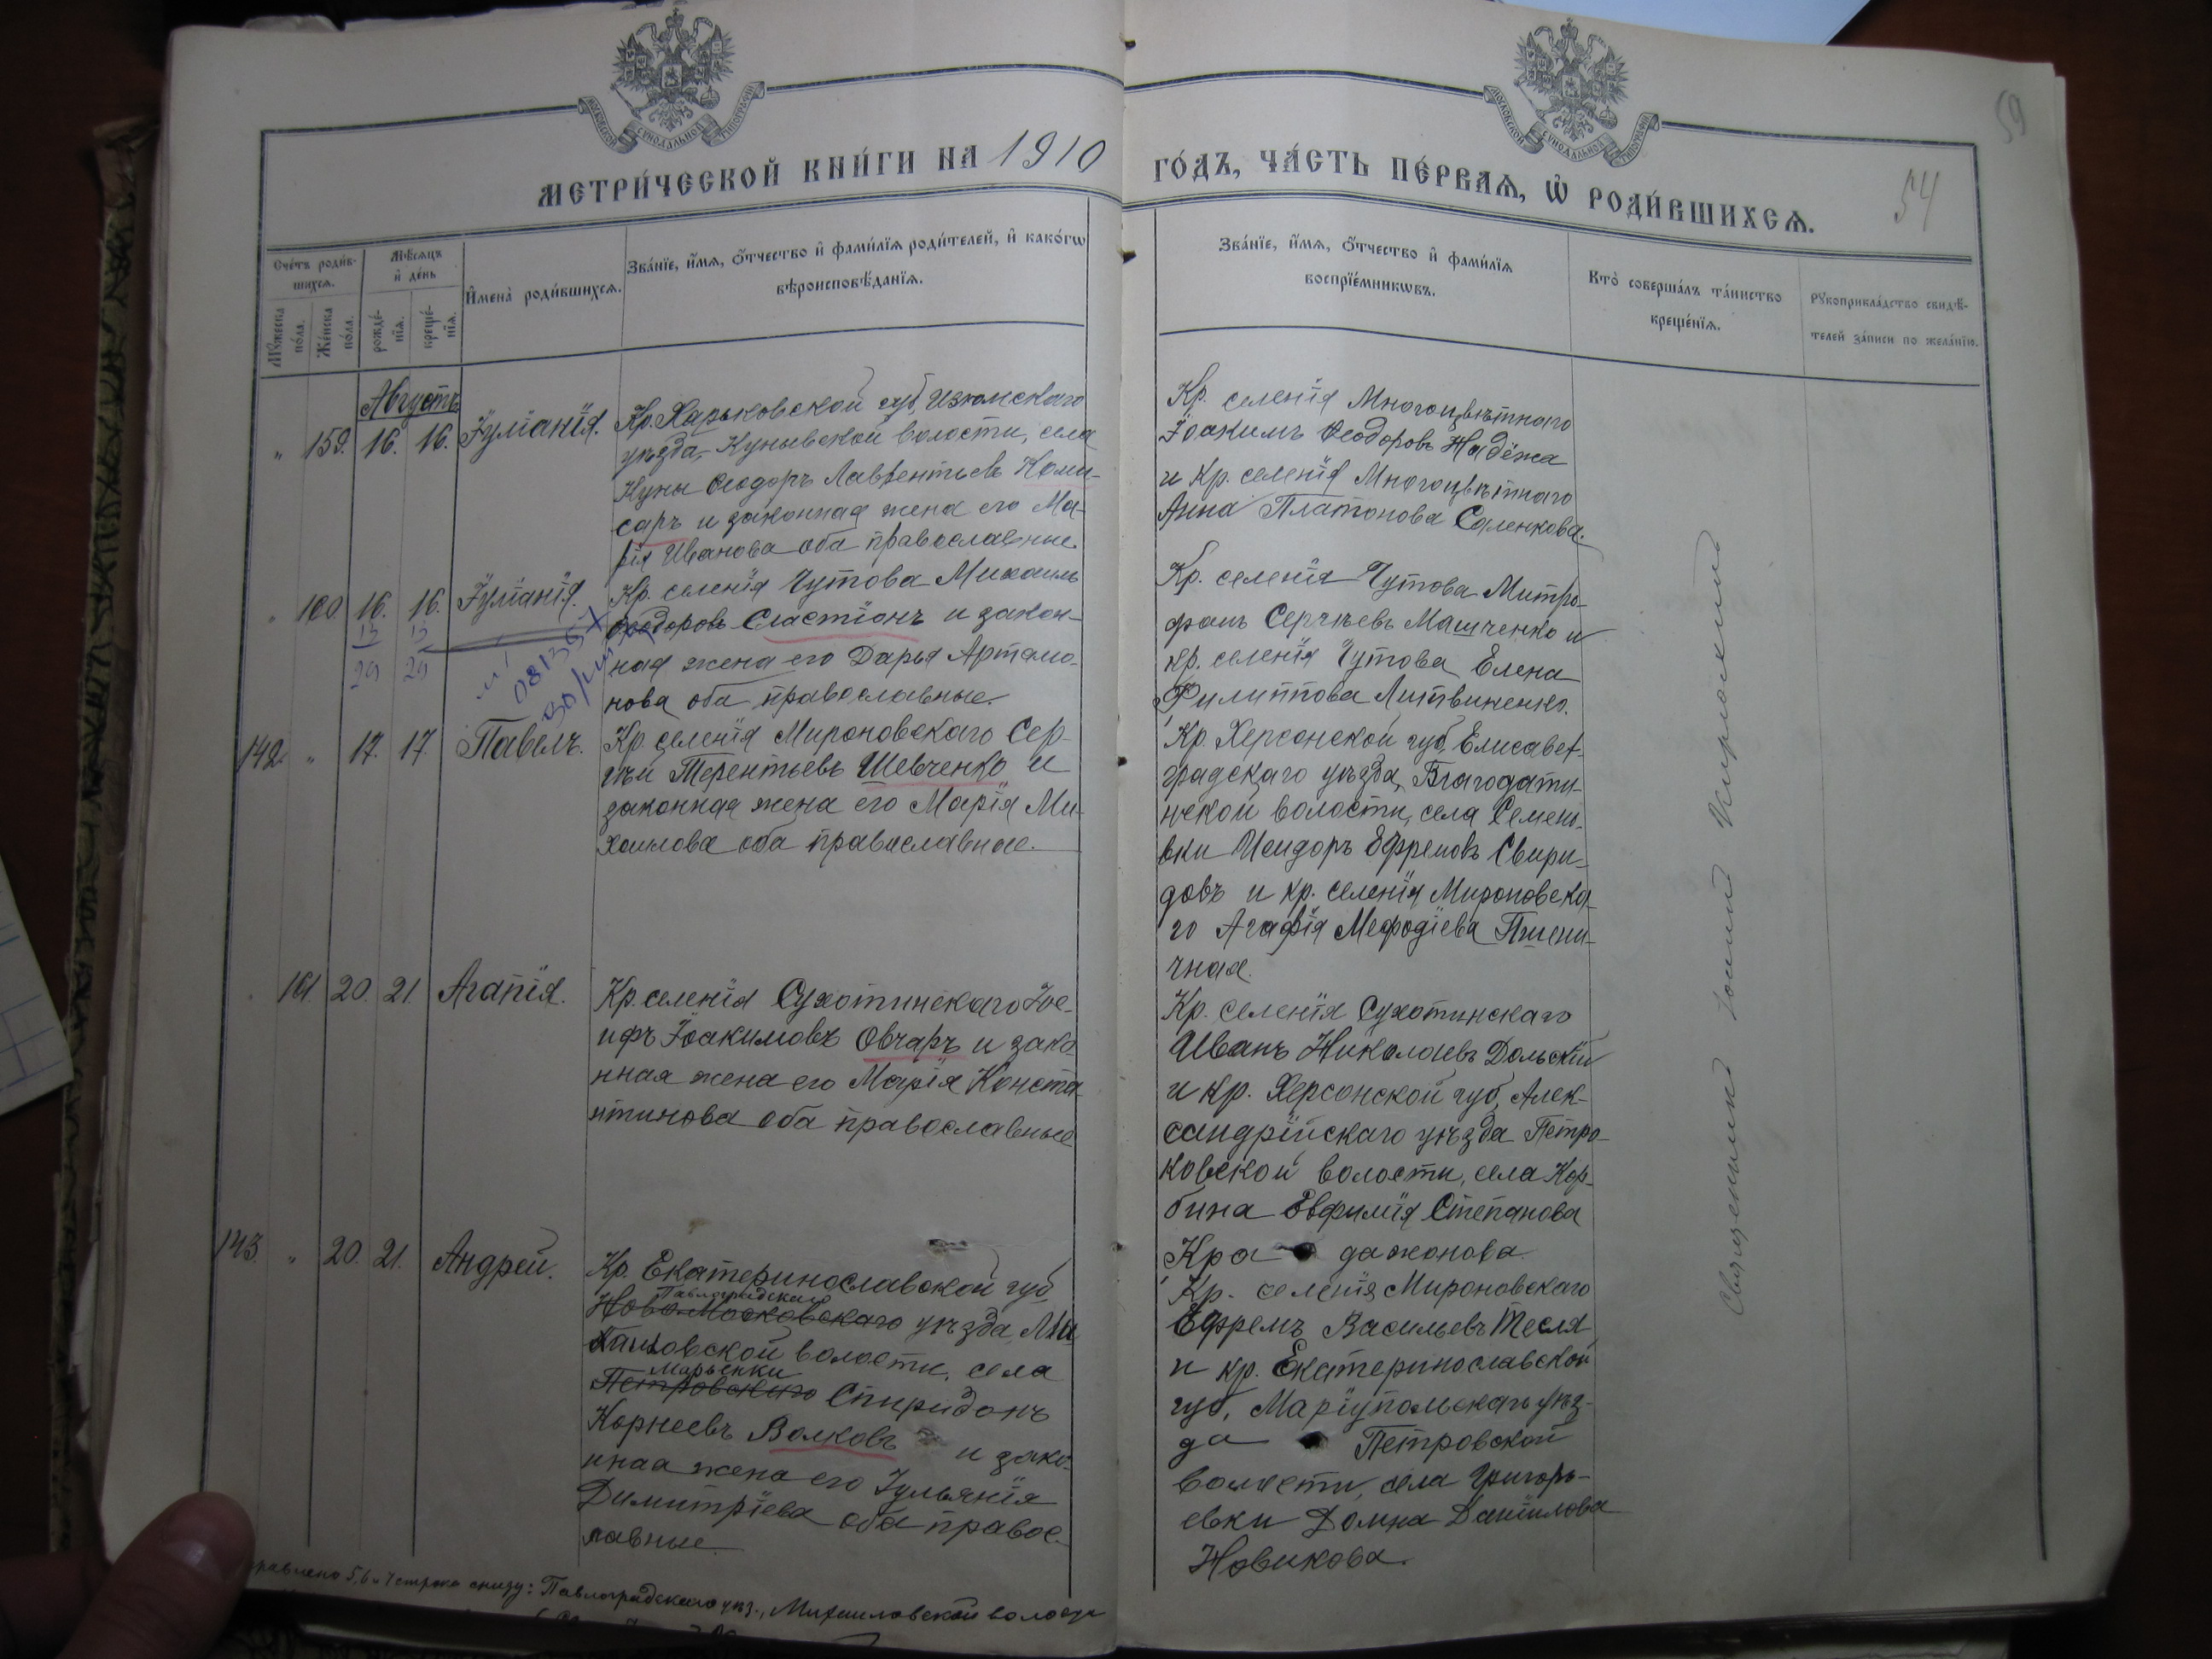 МОСКОВСКОЙ СѴНОДАЛЬНОЙ ТИПОГРАФІИ
МОСКОВСКОЙ СѴНОДАЛЬНОЙ ТИПОГРАФІИ
59
54
МЕТРИ́ЧЕСКОЙ КНИ́ГИ НА 1910
ГО́ДЪ, ЧА́СТЬ ПЕ́РВАѦ, Ѡ҆ РОДИ́ВШИХСѦ.
Сче́тъ роди́в-
шихсѧ.
Мꙋ́жеска
по́ла.
Же́нска
по́ла.
Мѣ́сѧцъ
и҆ де́нь
рожде́-
нїѧ.
креще́-
нїѧ.
И҆мена̀ роди́вшихсѧ.
Зва́нїе, и҆́мѧ, ѻ҆́тчество и҆ фами́лїѧ роди́телей, и҆ како́гѡ
вѣроисповѣ́данїѧ.
Зва́нїе, и҆́мѧ, ѻ҆́тчество и҆ фами́лїѧ
воспрїе́мникѡвъ.
Кто̀ соверша́лъ та́инство
креще́нїѧ.
Рꙋкоприкла́дство свидѣ́-
телей за́писи по жела́нїю.
Августъ
" 159. 16. 16. Іуліанія.
Кр. Харьковской губ, Изюмскаго
уѣзда, Куньевской волости, села
Куньи Ѳеодоръ Лаврентьевъ Коми-
саръ и законная жена его Ма-
рія Иванова оба православные.
Кр. селенія Многоцвѣтнаго
Іоакимъ Ѳеодоровъ Надёжа
и кр. селенія Многоцвѣтнаго
Анна Платонова Саленкова.
" 160. 16. 16. Іуліанія.
13 13
29 29
Кр. селенія Чутова Михаилъ
Ѳеодоровъ Сластіонъ и закон-
ная жена его Дарья Артамо-
нова оба православные.
Кр. селенія Чутова Митро-
фанъ Сергѣевъ Машченко и
кр. селенія Чутова Елена
Филиппова Литвиненко.
142. " 17. 17. Павелъ.
Кр. селенія Мироновскаго Сер-
гѣй Терентьевъ Шевченко и
законная жена его Марія Ми-
хаилова оба православные.
Кр. Херсонской губ, Елисавет-
градскаго уѣзда, Благодатн-
нской волости, села Семено-
вки Исидоръ Ефремовъ Свири-
довъ и кр. селенія Мироновска-
го Агафія Меѳодіева Пшени-
чная.
" 161. 20. 21. Агапія.
Кр. селенія Сухотинскаго Іос-
ифъ Іоакимовъ Овчаръ и зако-
нная жена его Марія Конста-
нтинова оба православные
Кр. селенія Сухотинскаго
Иванъ Николаевъ Дольскій
и кр. Херсонской губ, Алек-
сандрійскаго уѣзда Петро-
ковской волости, села Кор-
бина Евфимія Степанова
Кра дажонова.
143. " 20. 21. Андрей.
Кр. Екатеринославской губ,
Павлоградскаго
Ново-Московскаго уѣзда, Ми-
хаиловской волости, села
Марьенки
Петровскаго Спиридонъ
Корнеевъ Волковъ и зако-
нная жена его Іульянія
Димитріева оба правос-
лавные.
Кр. селенія Мироновскаго
Ефремъ Васильевъ Тесля
и кр. Екатеринославской
губ, Маріупольскаго уѣз-
да Петровской
волости, села Григорь-
евки Домна Даниилова
Новикова.
Священникъ Іоаннъ
равлено 5, 6 и 7 строка снизу: Павлоградскаго уѣз., Михаиловской волости